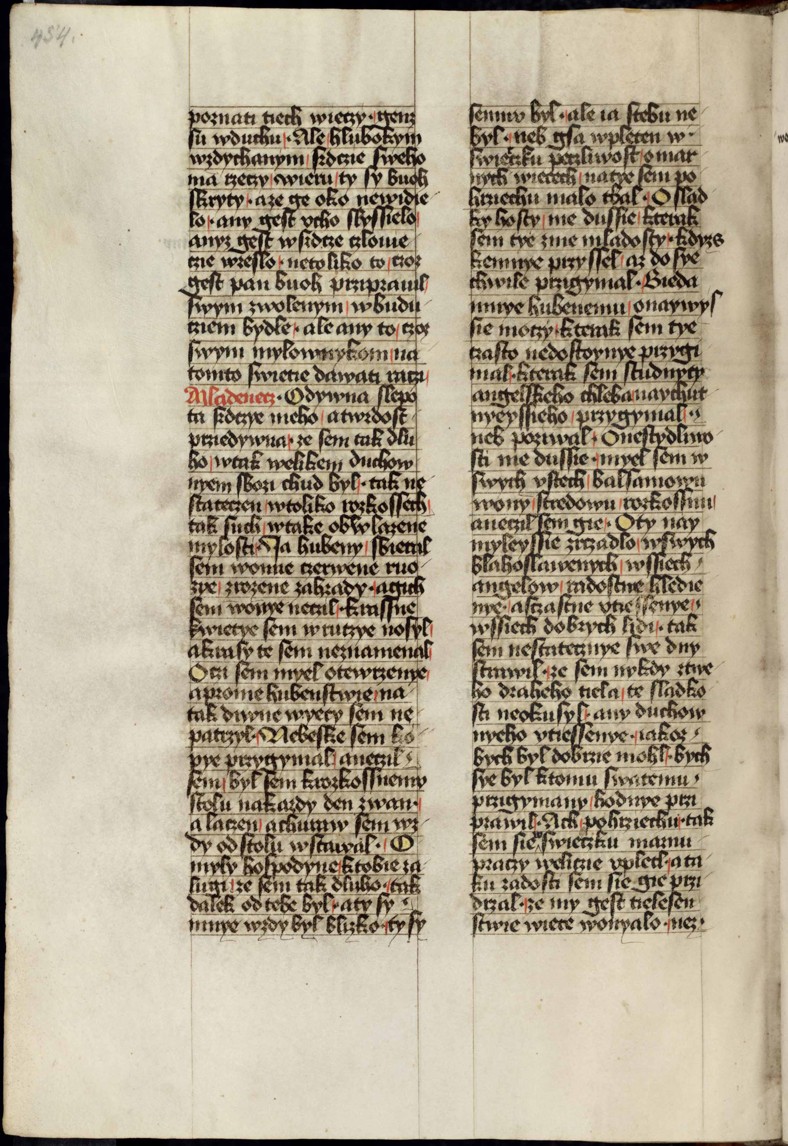 454.
poznati tiech wieczy · genz
su wduchu · Ale hlubokym
wzdychanym srdcie sweho
ma rzeczy wieru ty sy buoh
skryty · aze ge oko newidie
lo · any gest vcho slyssielo
anyz gest wsrdcze czlowie
cie wzeslo · netoliko to czoz
gest pan buoh przиprawil
swym zwolenym w budu
cziem bydle · ale any to czoz
swym mylownykom na
tomto swietie dawati raczi
Mladenecz · Odywna slepo
ta srdczye meho atwrdost
przedywna · ze sem tak dlu
ho wtak welikem duchow
nyem sbozi chud byl · tak ne
stateczen wtoliko rozkossech
tak such wtake obwlazene
mylosti · Ja hubeny sbieral
sem wonne czerwene ruo
zye zrozene zahrady · agich
sem wonye neczil · krassne
kwietye sem wruczye nosyl
akrasy te sem neznamenal
Oczi sem myel otewrzenye
aprome hubenstwie na
tak diwne wyeczy sem ne
patrzyl · Nebeske sem ko
pye przygymal aneczil
sem byl sem krozkossnemy
stolu nakazdy den zwan
a laczen achuraw sem wz
dy od stolu wstawal · O
myly hospodyne ktobie za
lugi ze sem tak dluho · tak
dalek od tebe byl · aty sy
mnye wzdy byl blizko · ty sy
semnu byl · ale ia stebu ne
byl · neb gsa wpleten w
swietsku peczliwost omar
nych wieczech natye sem po
hrziechu malo tbal · O slad
ky hosty me dussie kterak
sem tye zme mladosty · kdyzs
kemnye przyssel az do sye
chwile przigymal · Bieda
mnye hubenemu onaywys
sie moczy · kterak sem tye
czasto nedostoynye przygi
mal · kterak sem studnyty
angelskeho chleba naychut
nyeyssieho przygymal
neb pozywal · Onestydliwo
sti me dussie · myel sem w
swych vstech balsamowu
wony stredowu rozkossnu
aneczil sem gie · O ty nay
myleyssie zrzadlo wswych
blahoslawenych wssiech
angelow radostne hledie
nye · asczastne vtiessenye
wssiech dobrych lidi · tak
sem nestatecznye swe dny
strawil · ze sem nykdy twe
ho draheho tiela te sladko
sti neokusyl any duchow
nyeho vtiessenye · iakoz
bych byl dobrzie mohl · bych
sye byl ktomu swatemu
przigymany hodnye przi
prawil · Ach pohrziechu · tak
sem sie swietsku marnu
praczy welicze vpletl · ata
ku radosti sem sie gie przi
drzal · ze my gest tielesen
stwie wiecze wonyalo · nez